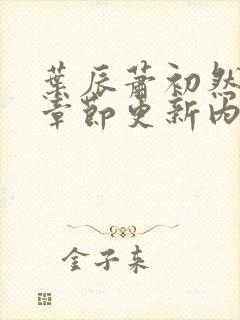 葉辰蕭初然
章節更新內
金子来